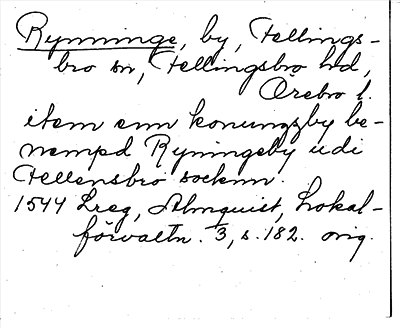 Rynninge, by, Fellings-
bro sn, Fellingsbro hd,
Örebro l.
item enn konungzby be-
nempd Ryningeby udi
Fellensbro socknn.
1544 Lreg, Almquist, Lokal-
förvaltn. 3, s. 182. orig.